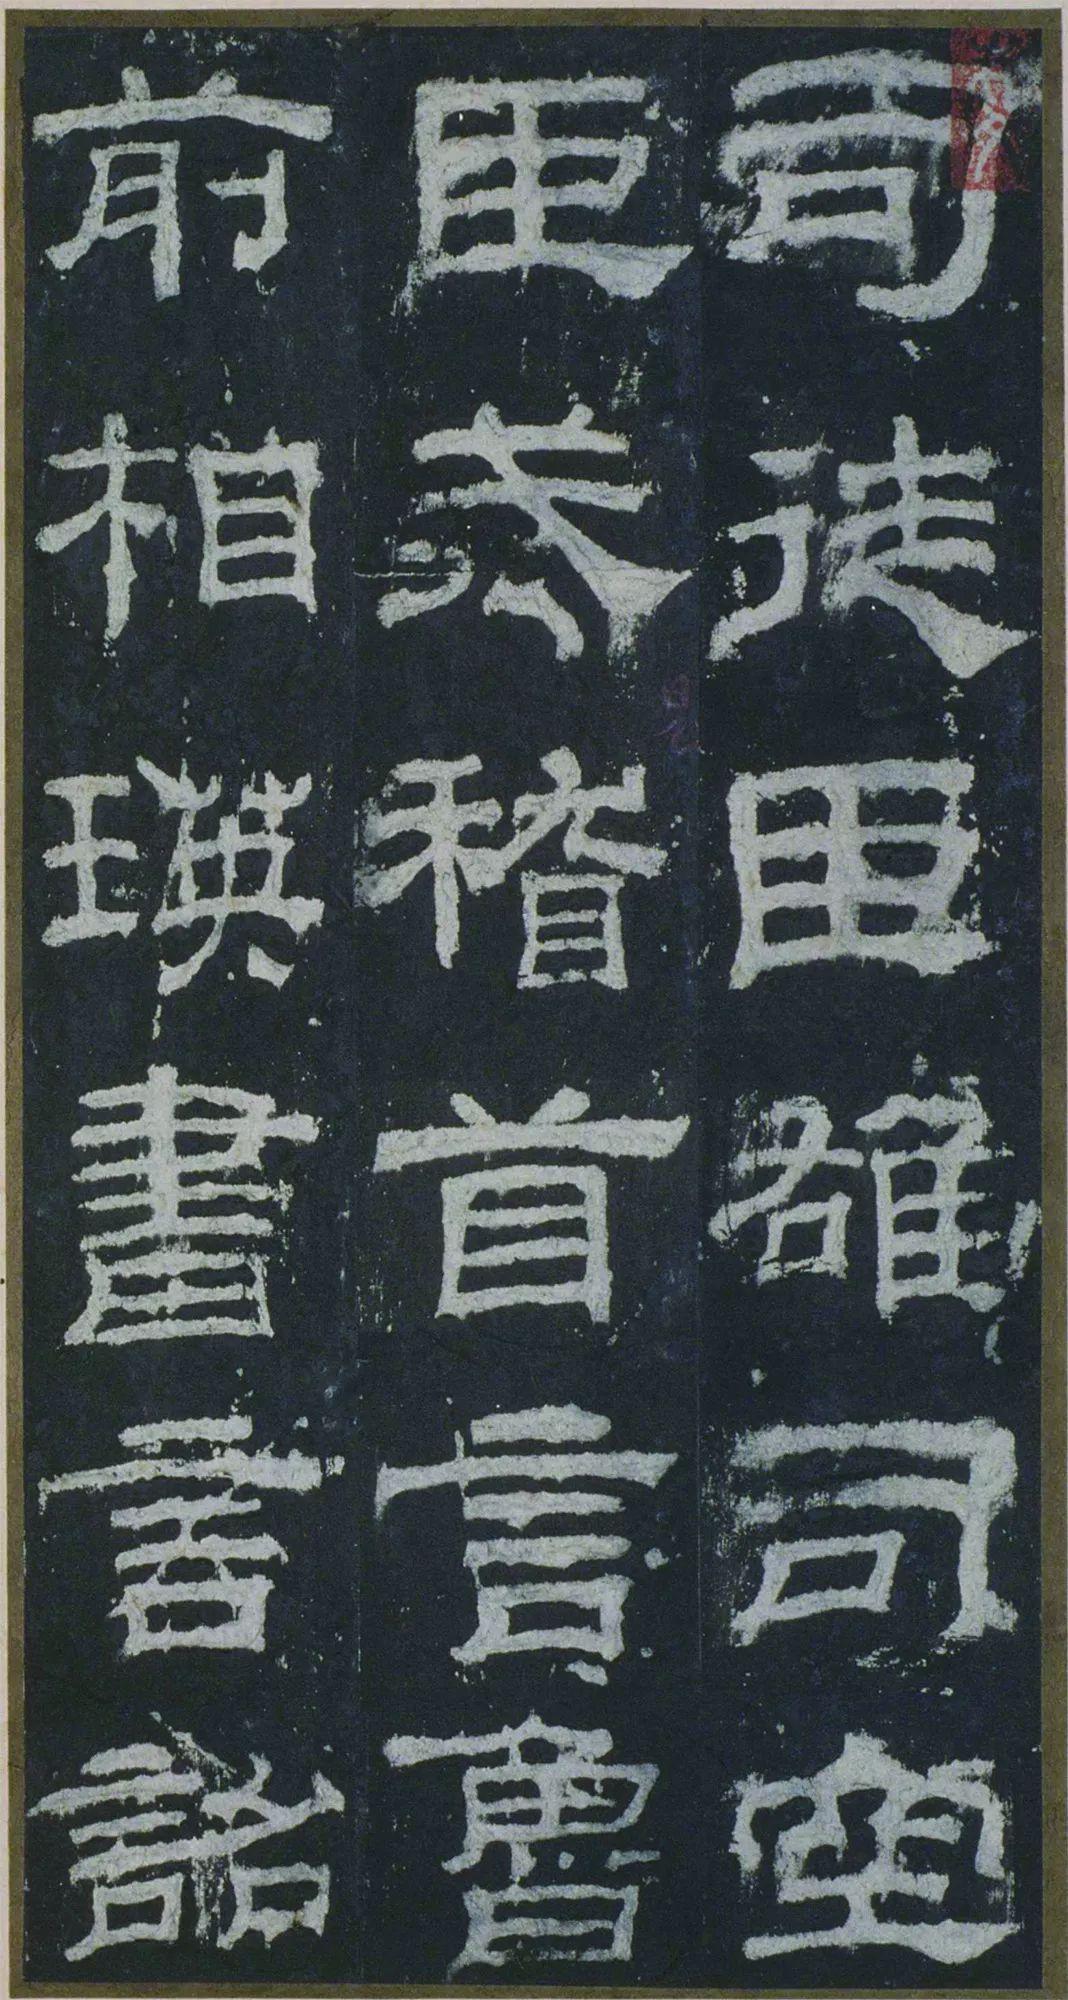 司徒臣雄司空
臣戒稽首言魯
前相瑛書言詔